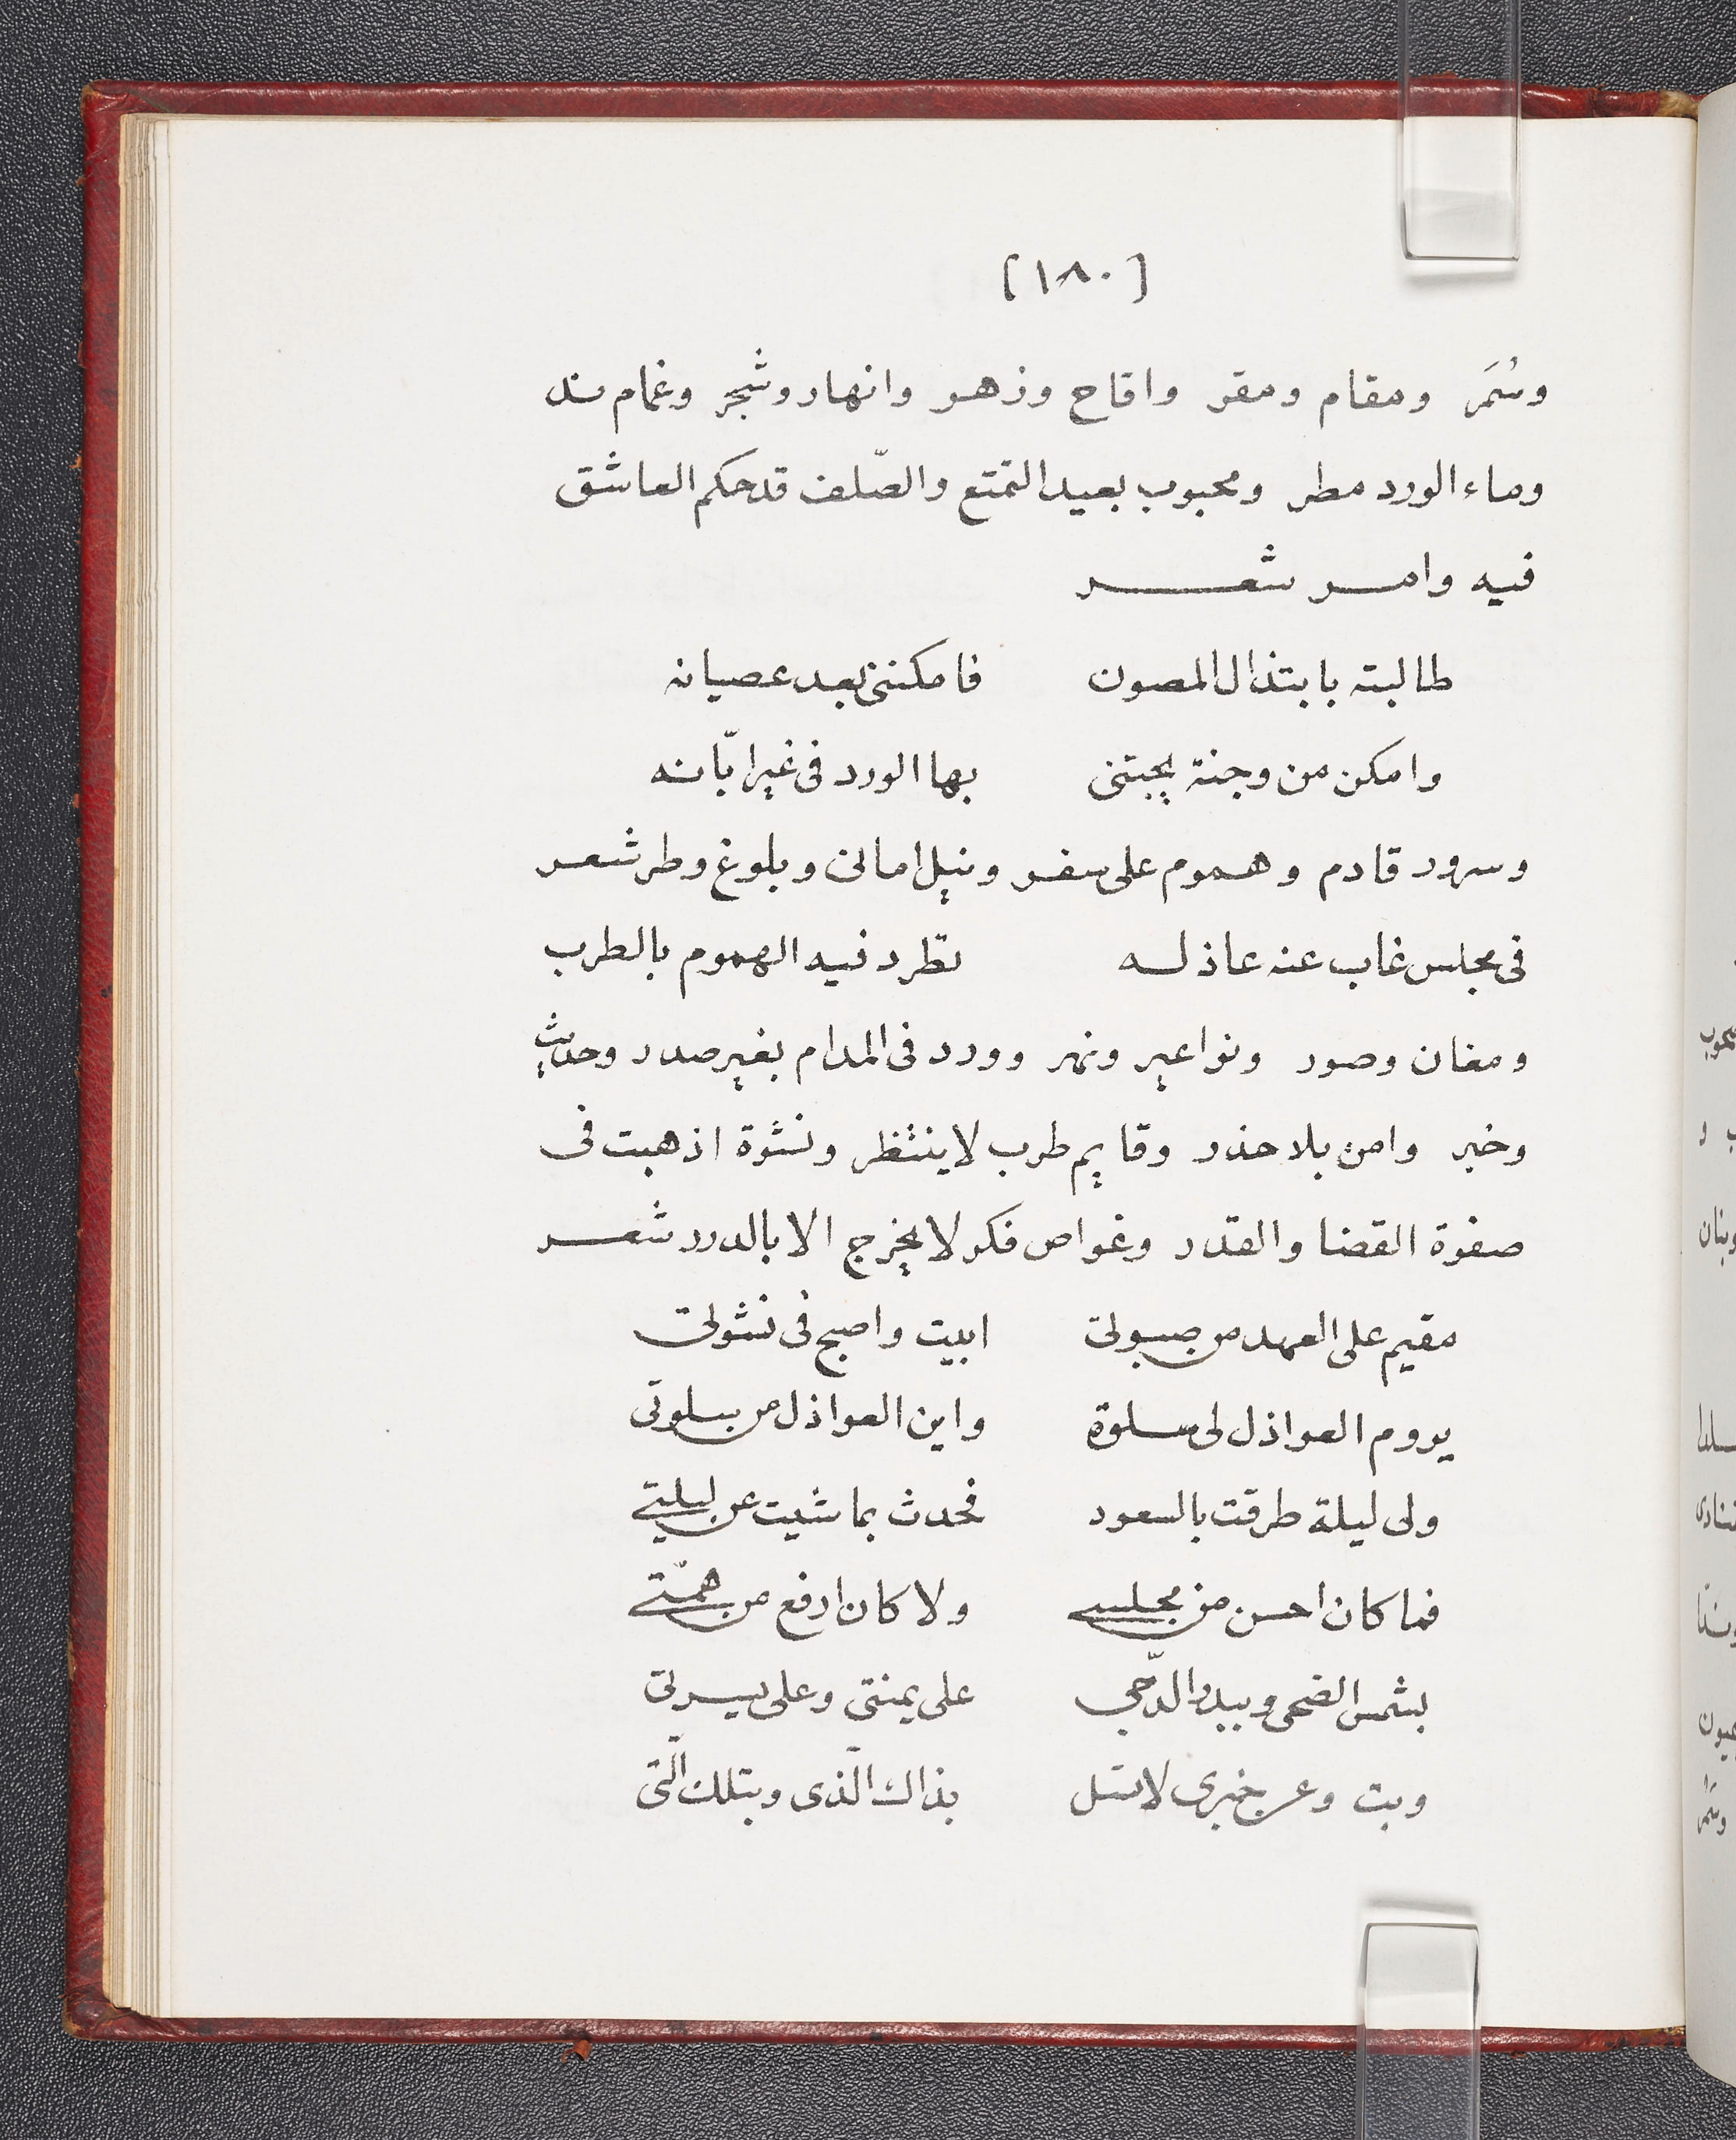 [١٨٠]
وسُمَر ومقام ومقر واقاح وزهر وانهار وشجر وغمام ند
وماء الورد مطر ومحبوب بعيد التمتع والصّلف قد حكم العاشق
فيه وامر شعر
طالبته بابتذال المصون فامكننى بعد عصيانه
وامكن من وجنة يجتنى بها الورد فى غير ابّانه
وسرور قادم وهموم على سفر ونيل امانى وبلوغ وطر شعر
فى مجلس غاب عنه عاذله تطرد فيه الهموم بالطرب
ومغان وصور ونواعير ونهر وورد فى المدام بغير صدر وحديث
وخبر وامن بلا حذر وقايم طرب لا ينتظر ونشوة اذهبت فى
صفوة القضا والقدر وغواص فكر لا يخرج الا بالدرر شعر
مقيم على العهد من صبوتى ابيت واصبح فى نشوتى
يروم العواذل لى سلوة واين العواذل من سلوتى
ولى ليلة طرقت بالسعود فحدث بما شيت عن ليلتي
فما كان احسن من مجلسي ولا كان ارفع من همّتي
بشمس الضحى وببدر الدّجي على يمنتى وعلى يسرتى
وبت وعن خبرى لا تسل بذاك الّذى وبتلك الّتى